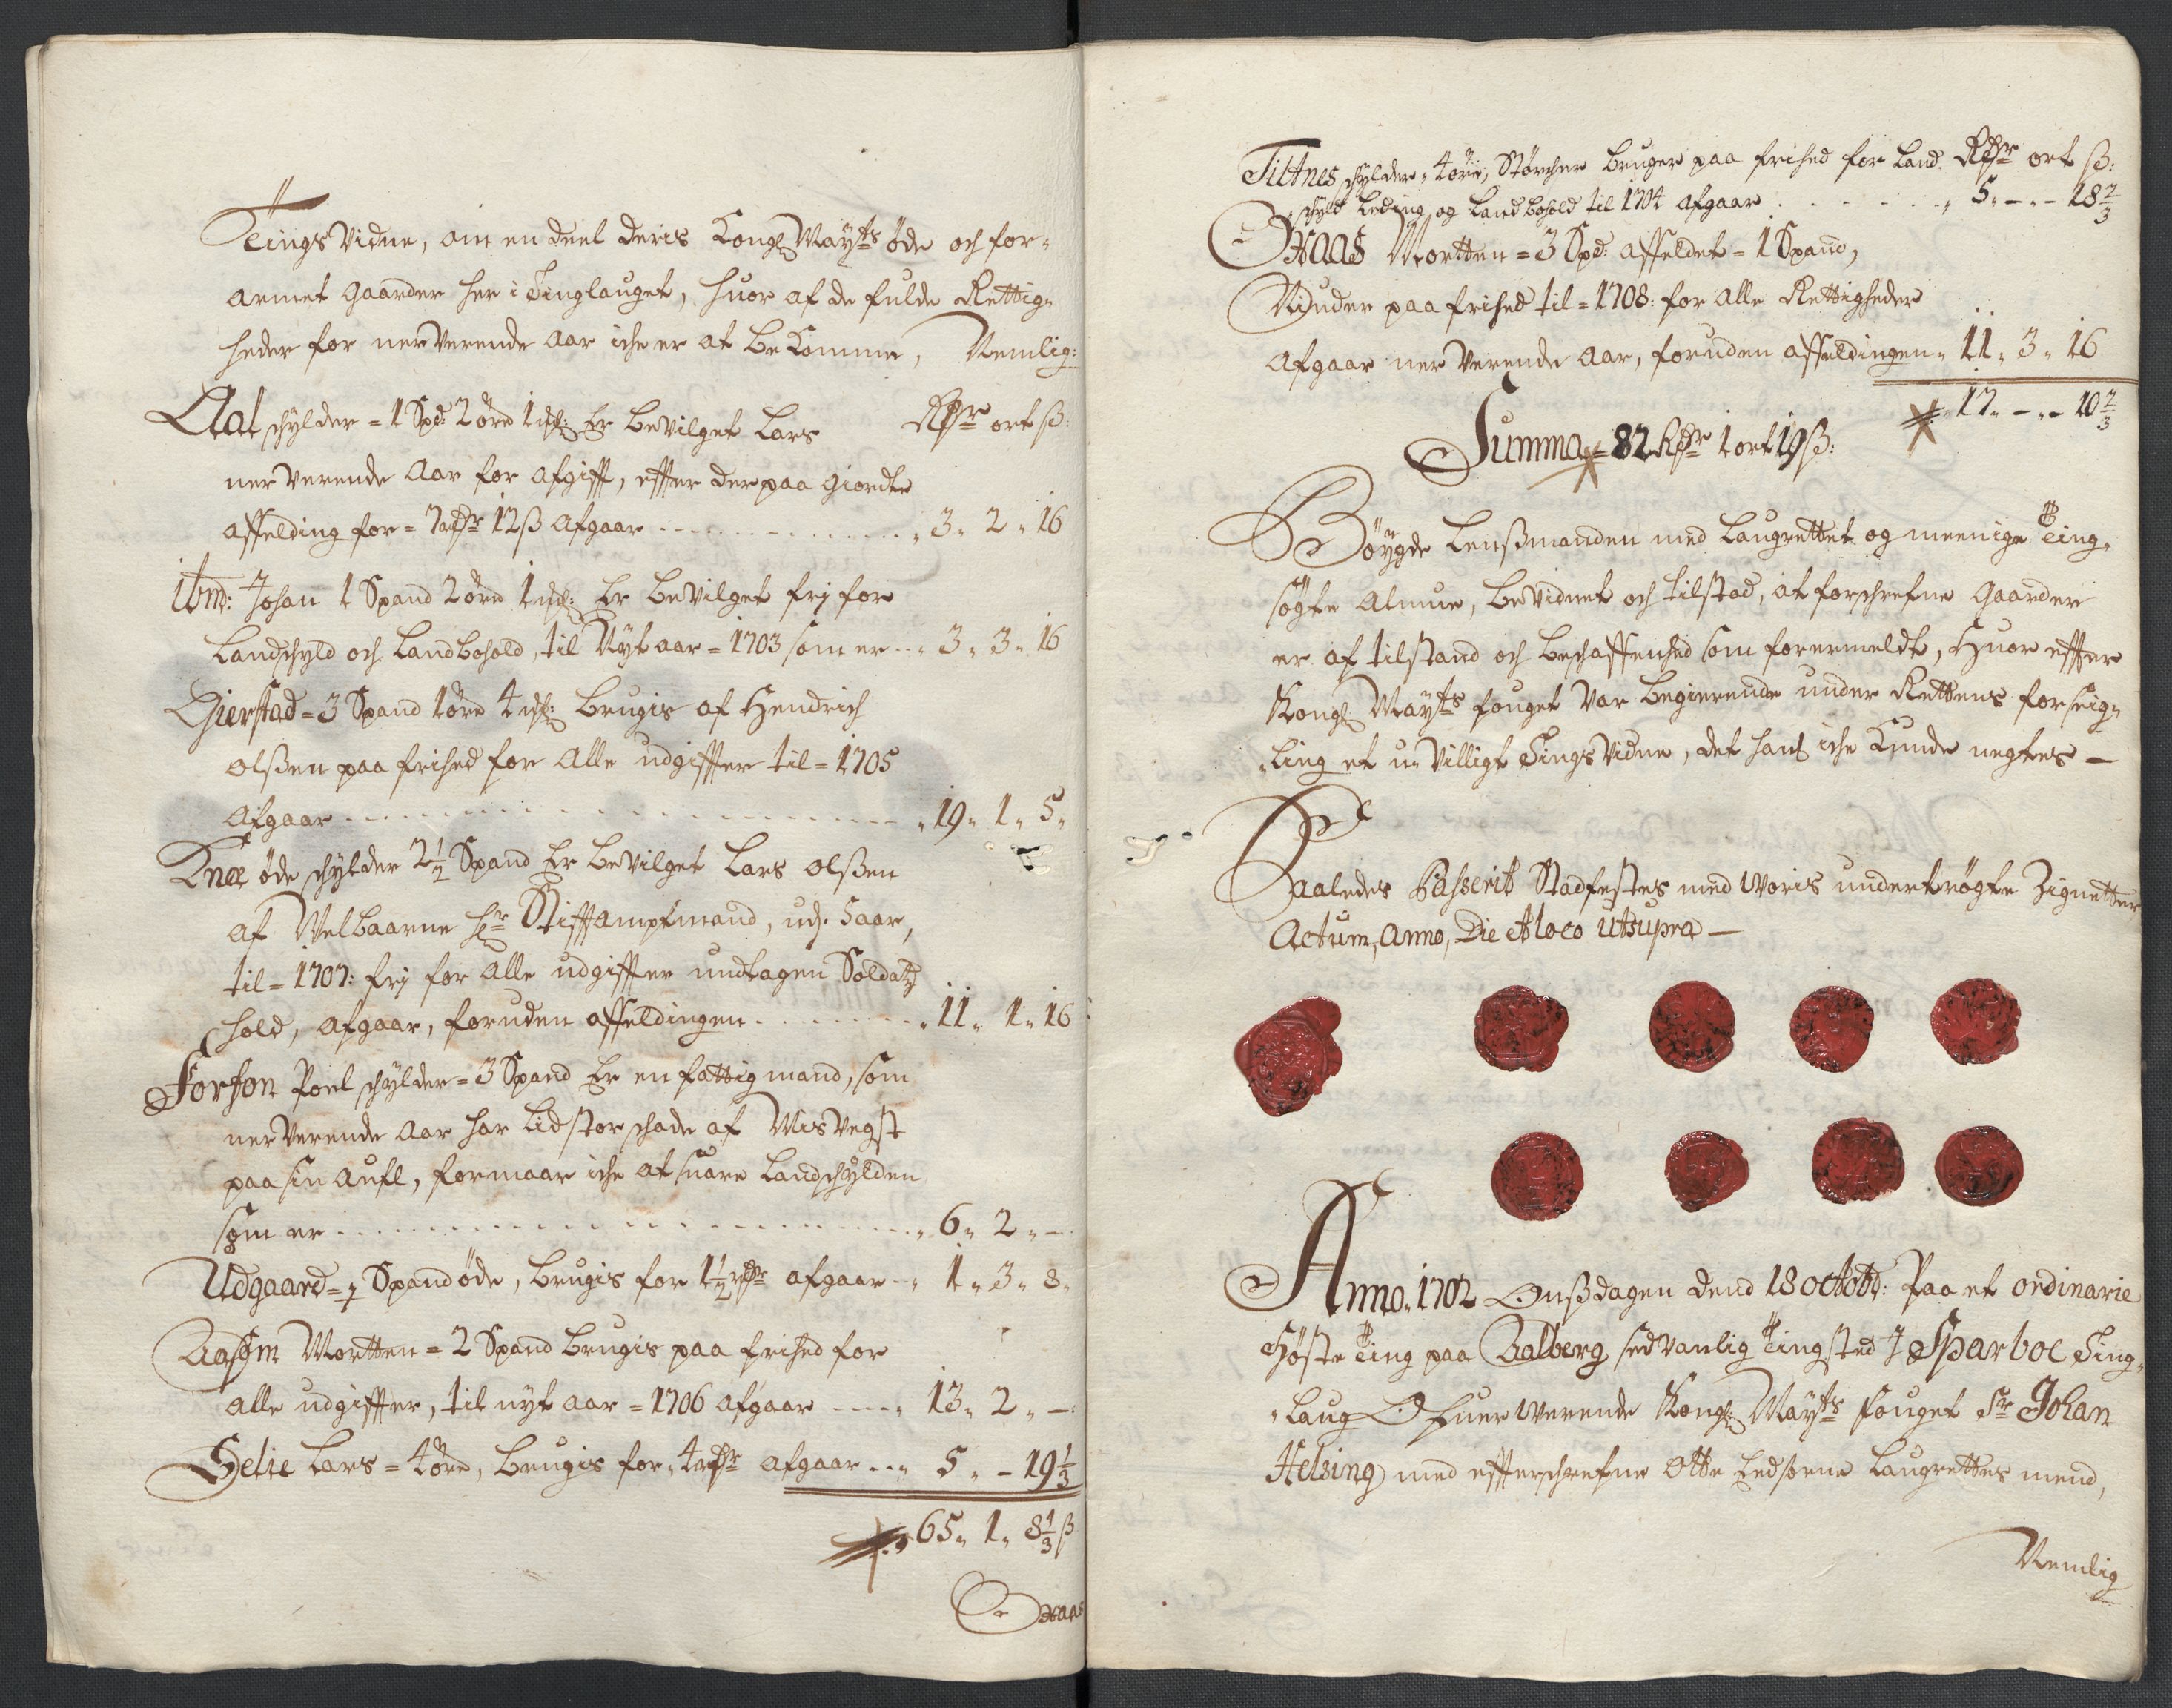 Tings Vidne, om en deel deris Kongl Mayts øde och for-
armet Gaarder her i Tinglauget, huor af de fulde Rettig-
heder for nerverende Aar iche er at bekomme, Nemlig:
Aal schylder = 1 Spd: 2 øre 1 mßl: Er bevilget Lars Rdr ort ß:
nerverende Aar for afgifft, effter derpaa giordte
affelding for = 7 Rdr 12 ß Afgaar 3 " 2 " 16
ibm: Johan 1 Spand 2 øre 1 mßl: Er bevilget frj for
Landschyld och Landbohold, til Nyt aar = 1703 som er 3 " 3 " 16
Gierstad = 3 Spand 1 øre 4 mßl: Brugis af Hendrich
Olßen paa frihed for alle udgiffter til = 1705
Afgaar 19 " 1 " 5 "
Knæ øde schylder 2 1/2 Spand Er bevilget Lars Olßen
af Velbaarne hr Stifftamptmand, udj 5 aar,
til = 1707: frj for alle udgiffter undtagen Soldatz
hold, afgaar, foruden affeldingen 11 " 1 " 16
Forson Poel schylder = 3 Spand Er en fattig mand, som
nerverende Aar har lid stor schade af Misvegst
paa sin aufl, formaar iche at suare Landschylden
som er 6 " 2 " -
Udgaard = 1/2 Spand øde, brugis for 1 1/2 Rdr afgaar 1 " 3 " 8 "
Aasom Mortten = 2 Spand brugis paa frihed for
alle udgiffter, til nyt aar = 1706 afgaar 13 " 2 " -
Selie Lars = 4 øre, brugis for 4 Rdr afgaar 5 " - 19 1/3
65 " 1 " 8 1/3 ß
Tiltnes schylder 4 øre, Størcher bruger paa frihed for Land- Rdr ort ß:
schyld Leding og Landbohold til 1704 afgaar 5 " - " - 18 2/3
Haas Mortten = 3 Spd: affeldet = 1 Spand,
Niuder paa frihed til = 1708: for alle Rettigheder
afgaar nerverende Aar, foruden affeldingen 11 " 3 " 16
17 " - " - 10 2/3
Summa = 82 Rdr 1 ort 19 ß:
Bøygde Lensmanden med Laugrettet og meenige Ting-
søgte Almue, bevidnet och tilstod, at forschrefne Gaarder
er af tilstand och beschaffenhed som formeldt, Huor effter
Kongl Mayts fouget var begierende under Rettens forseig-
ling et u-villigt Tings Vidne, det hans iche kunde negtes -
Saaledes Passerit Stadfestes med Woris undertrøgte Zignetter
Actum, Anno, Die et loco utsupra -
Anno 1702 Onßdagen dend 18 octobr: Paa et ordinarie
Høste Ting paa Aalberg sedvanlig Tingsted J Sparboe Ting-
laug Ofuerwerende Kongl: Mayts fouget Sr Johan
Helsing med effterschrefne Otte Edsorne Laugrettes mend,
Nemlig